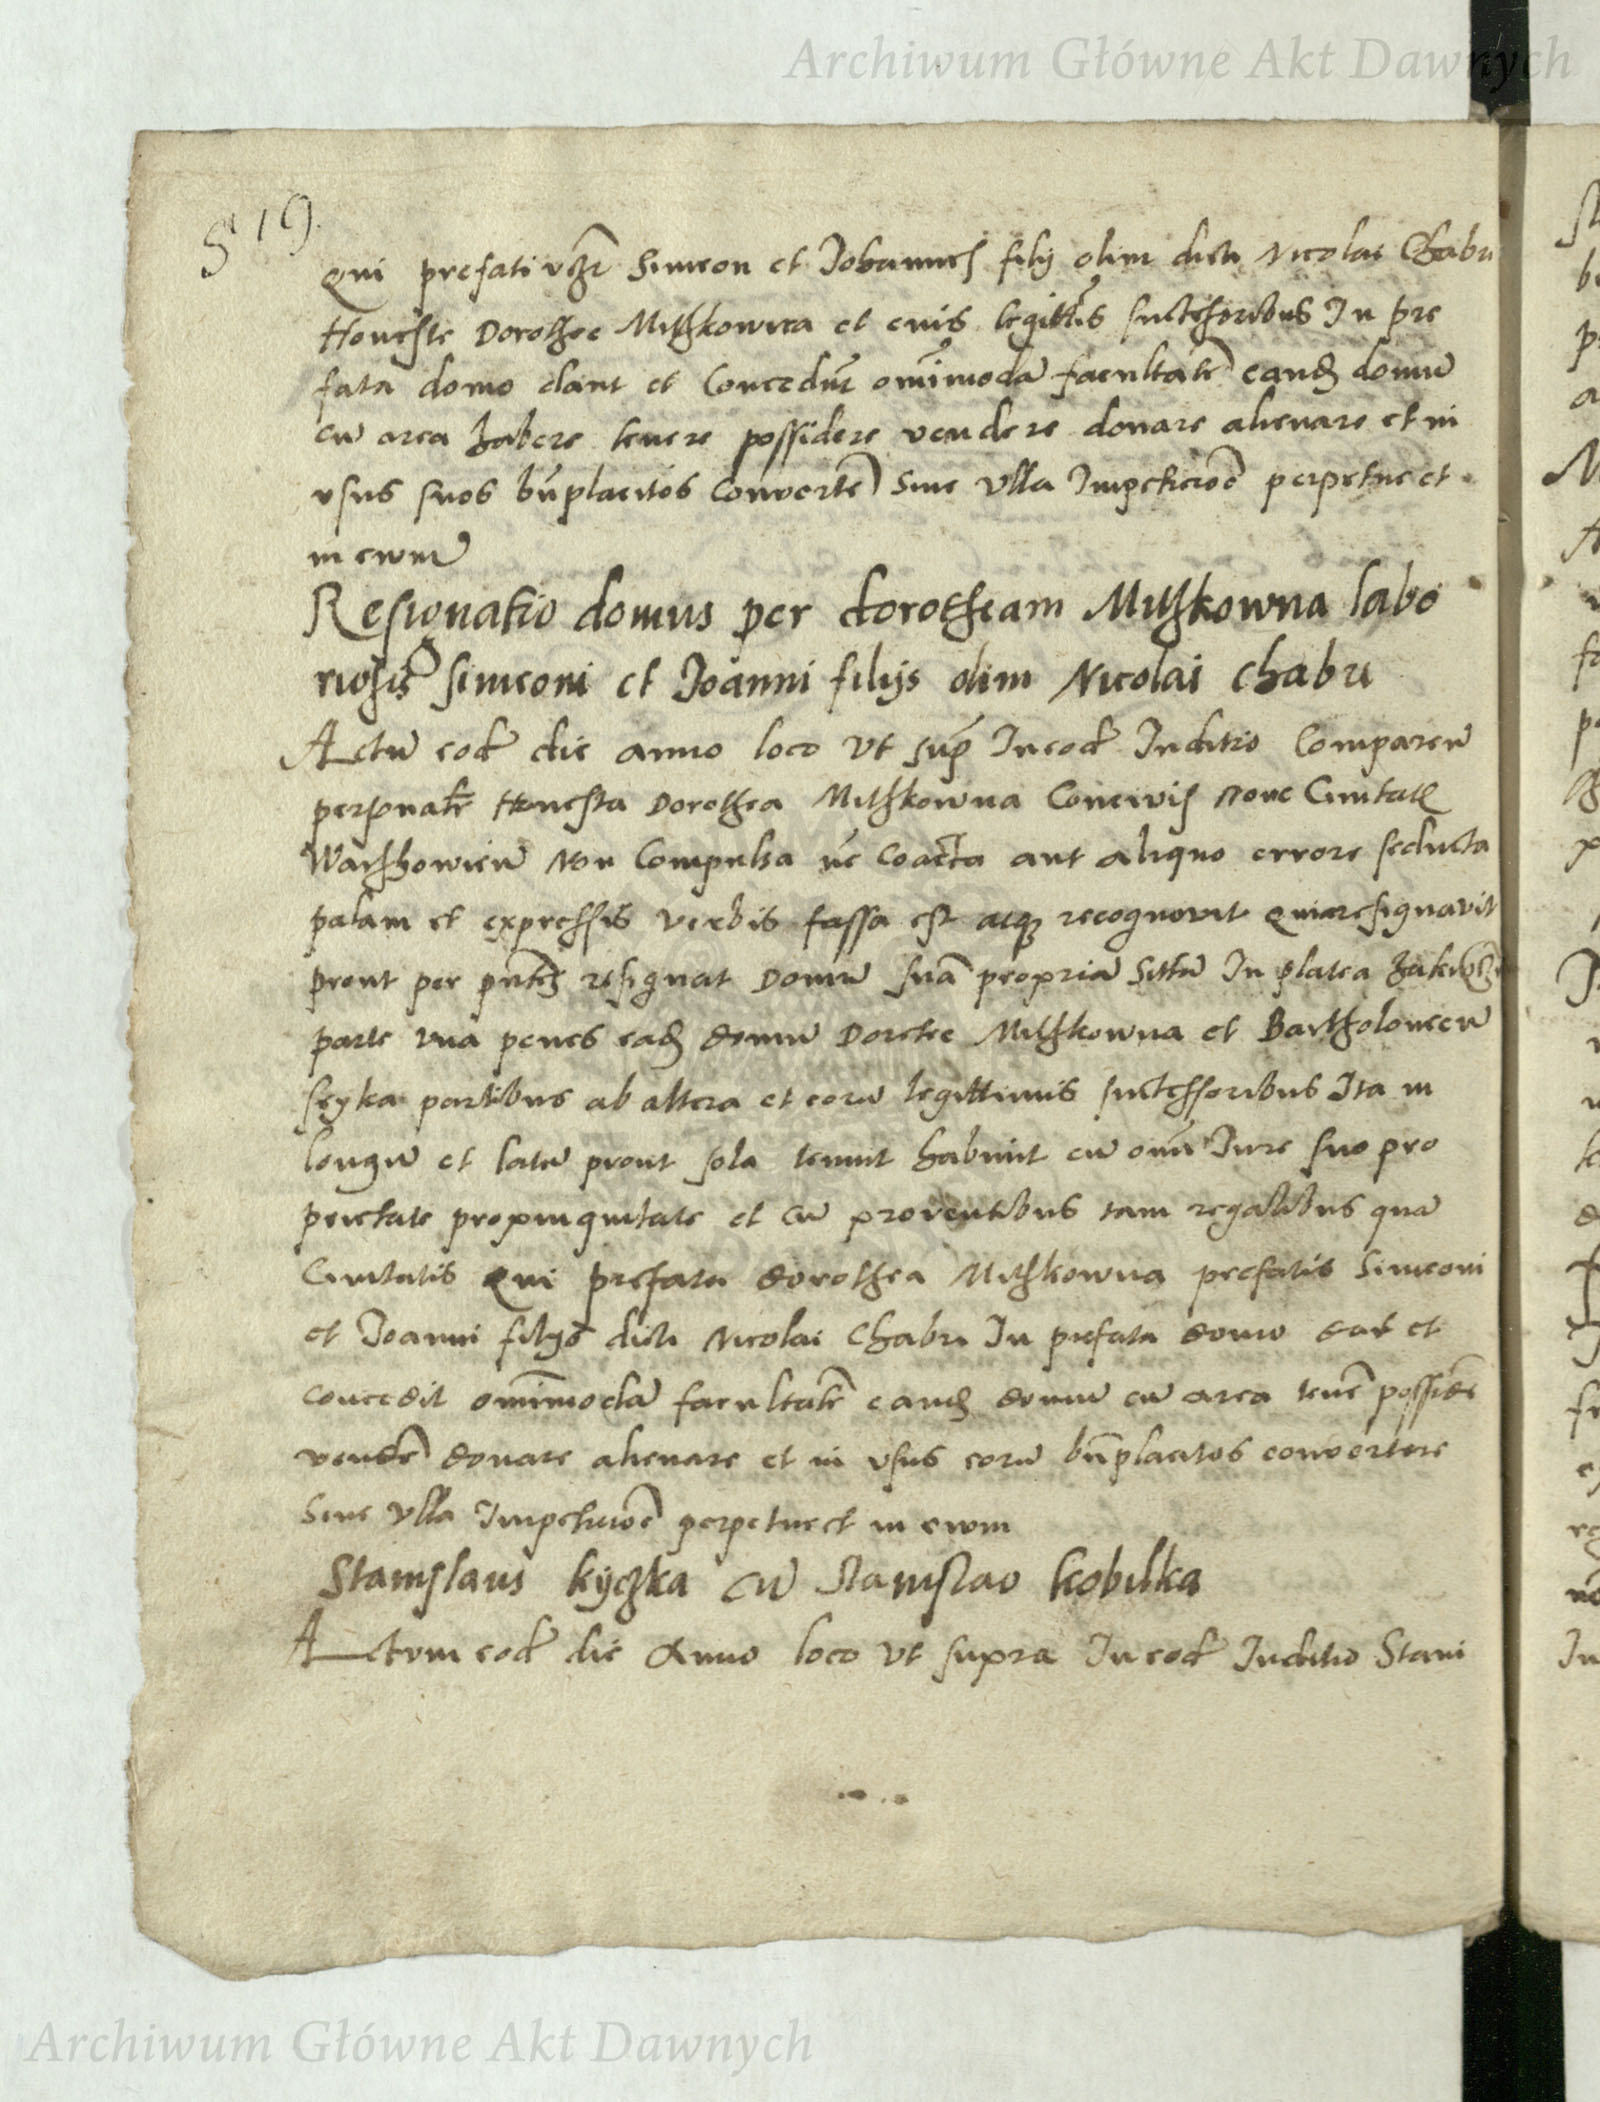 Archiwum Główne Akt Dawnych
519.
Qui prefati vcz Simeon et Johannes filij olim dicti Nicolai Chabu
Honeste Dorothee Mithkowna et euis legittis successoribus In pre
fata domo dant et Concedut omimoda facultate eand domu
cu area habere tenere possidere vendere donare alienare et in
vsus suos bnplacitos Converte Sine Vlla Impeticioe perpetue et
in ewm
Resignatio domus per dorotheam Mithkowna labo
riosis simeoni et Joanni filijs olim Nicolai Chabu
Actu eod die anno loco Vt sup In eod Juditio Comparen
personalr Honesta Dorothea Mithkowna Concivis nove Civitat
Warschowien Non Compulsa nec Coacta aut aliquo errore seducta
palam et expressis verbis fassa est atq recognovit quia resignavit
prout per pntes resignat Domu sua propria Sitta In platea
parte vna penes ead domu Dorotee Mithkowna et Bartholomeeu
seyka partibus ab altera et eoru legittimis successoribus Ita in
longu et latu prout sola tenuit habuit cu omi Jure suo pro
prietate propinquitate et cu proventibus tam regalibus qua
Civitatis Qui prefata dorothea Mithkowna prefatis Simeoni
et Joanni filijs dicti Nicolai Chabu In prefata domo dat et
concedit omimoda facultate eand domu cu area tene posside
vende donare alienare et in vsus eoru bnplacitos convertere
Sine Vlla Impeticioe perpetue et in ewm
Stanislaus kyczka cu Stanislao kobilka
Actvm eod die Anno loco Vt supra In eod Juditio Stani
Archiwum Główne Akt Dawnych